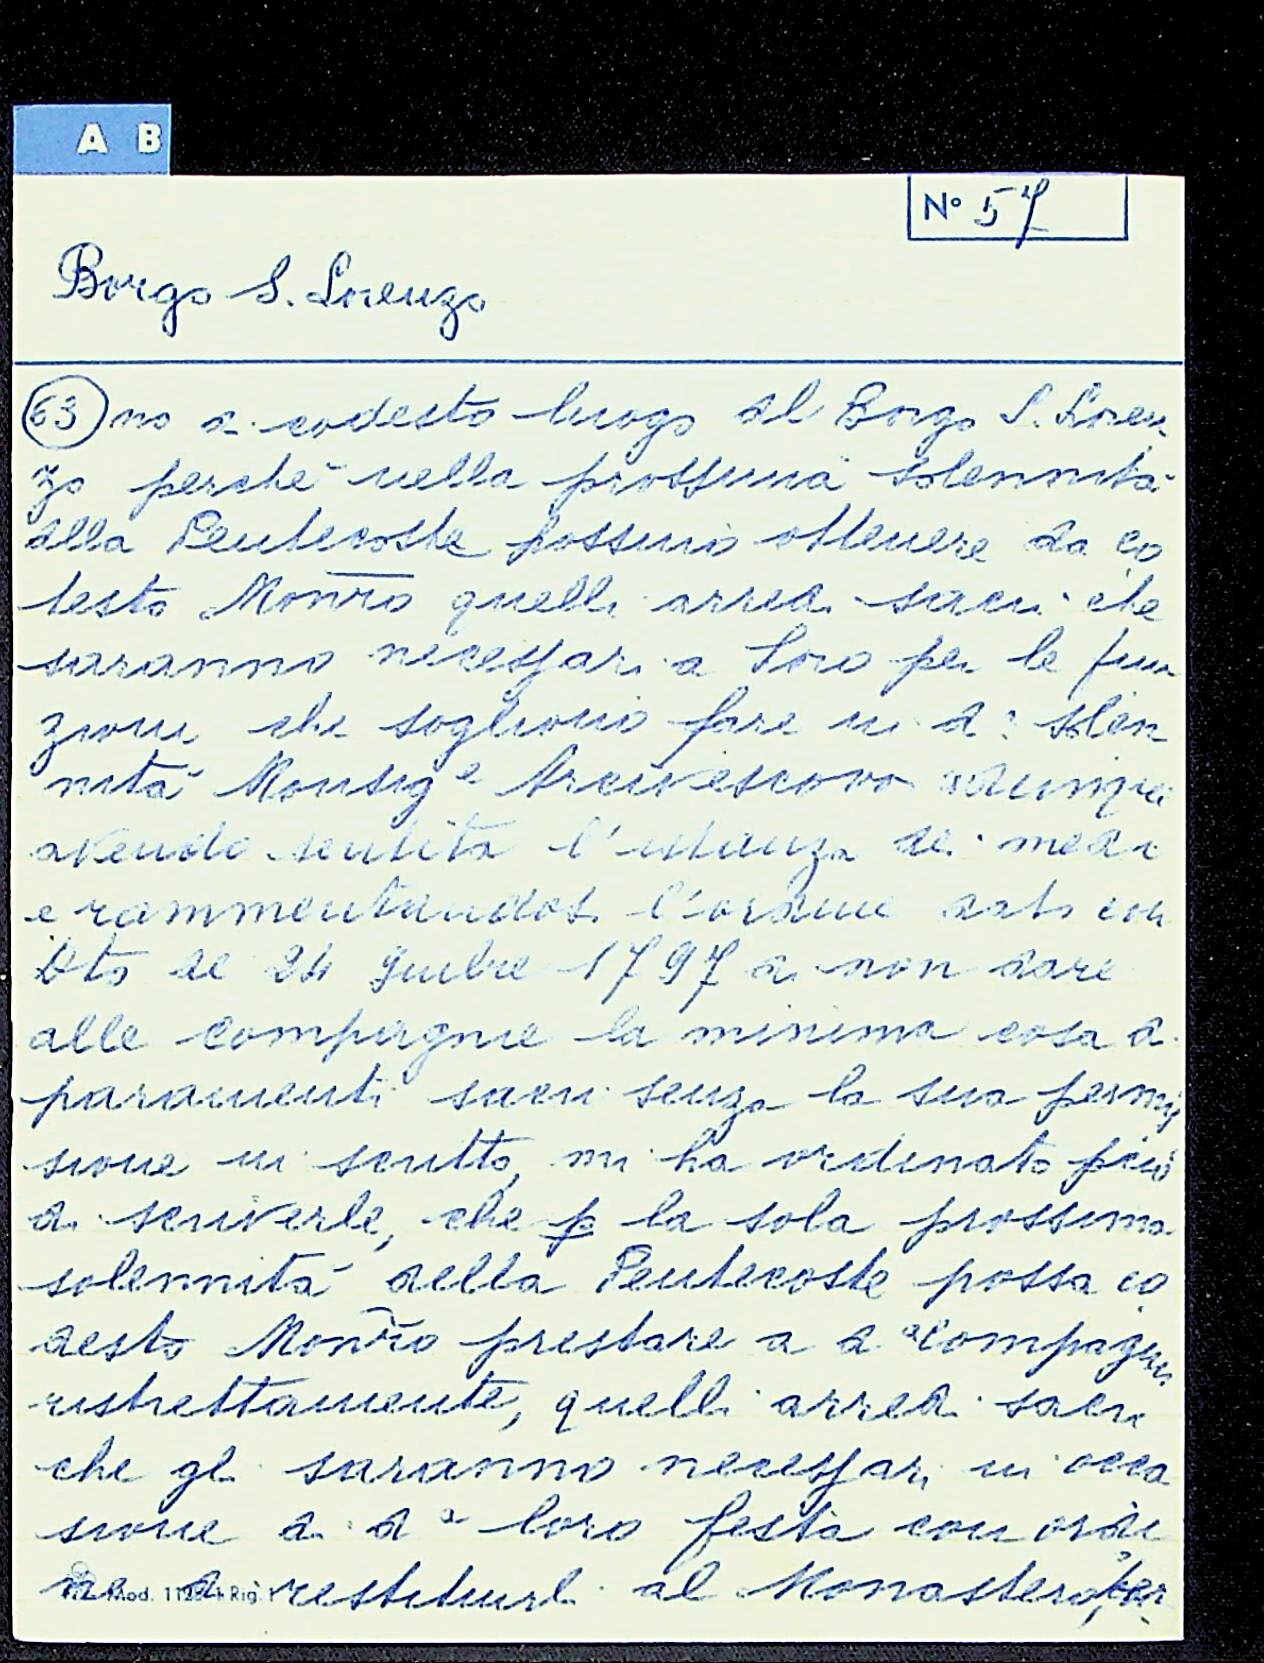 A B
Nº 57
Borgo S. Lorenzo
63 no di codesto luogo del Borgo S. Loren
zo perchè nella prossima solennità
della Pentecoste possino ottenere da co
testo Monrõ quelli arredi sacri che
saranno necessari a Loro per le fun
zioni che sogliono fare in da solen
nità Monsige Arcivescovo adunque
avendo sentita l'istanza de medi
e rammentandosi l'ordine dato con
Dto de 24 9mbre 1797 di non dare
alle Compagnie la minima cosa di
paramenti sacri senza la sua permis
sione in scritto, mi ha ordinato perciò
di scriverle, che p la sola prossima
solennità della Pentecoste possa co
desto Monrõ prestare a da Compagnia
ristrettamente, quelli arredi sacri
che gli saranno necessari in occa
sione di da loro festa con ordi
ne di restituirli al Monastero, per
Mod. 11 Rig.